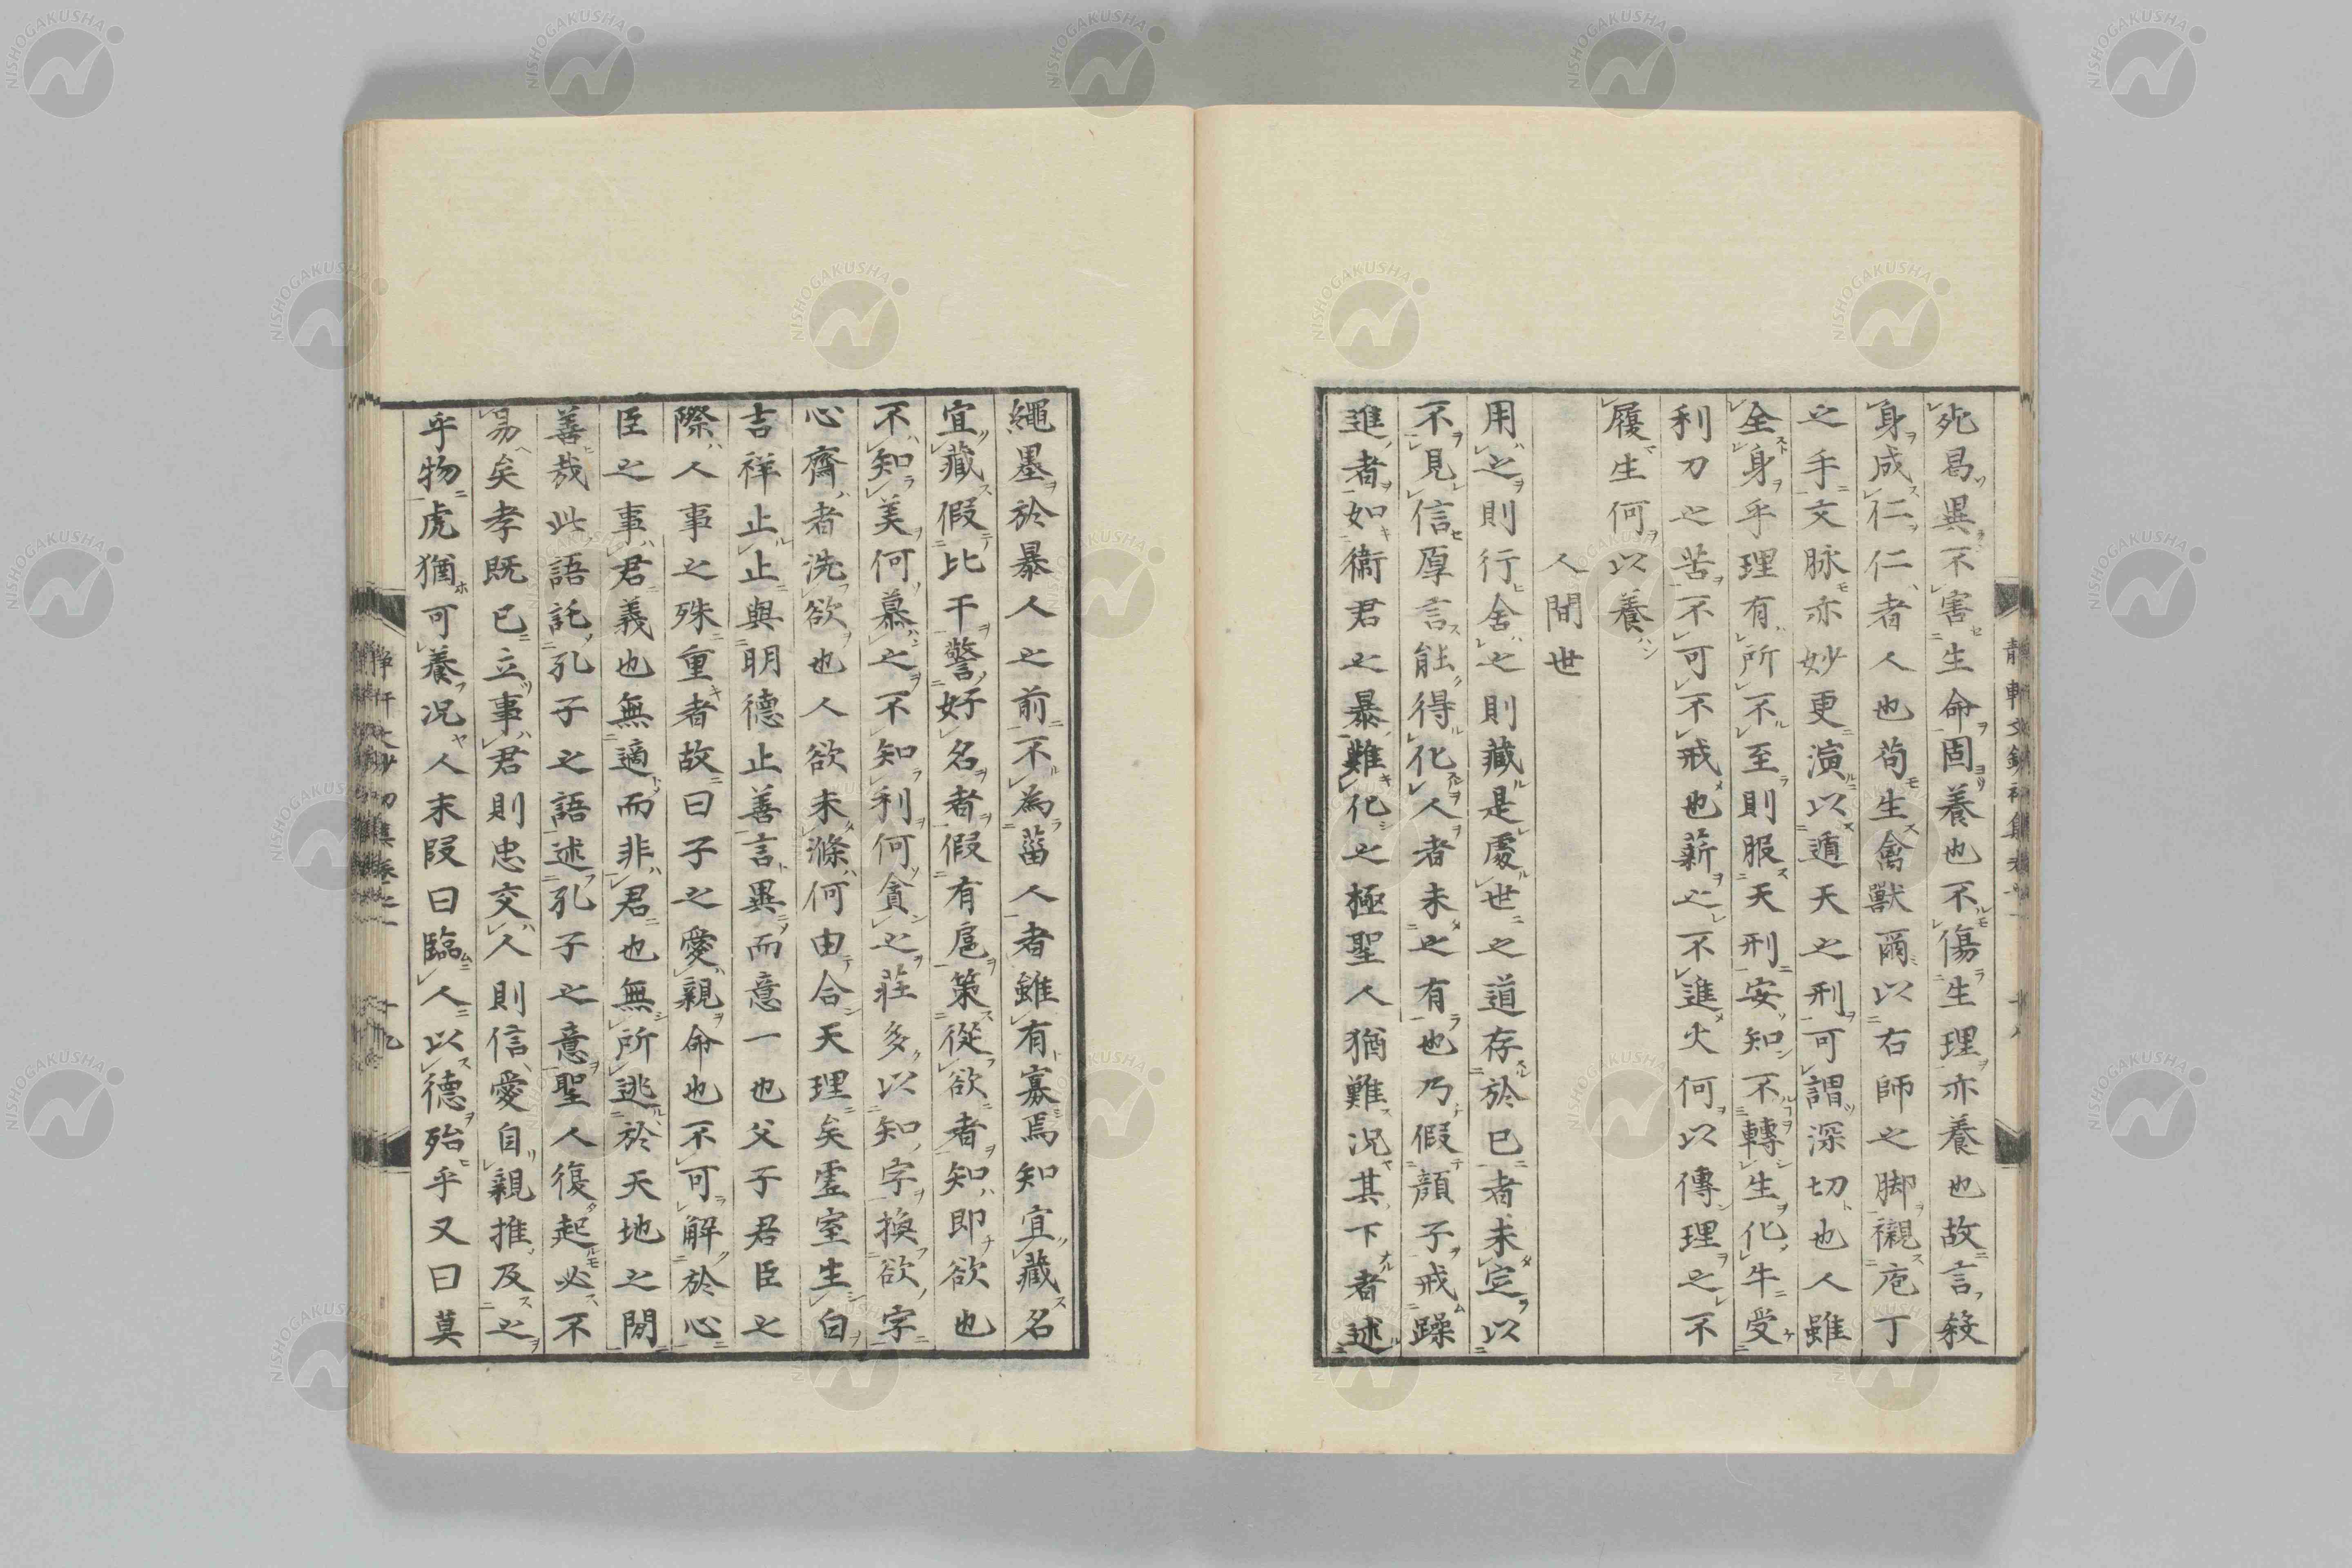 死曷異不害生命固養也不傷生理亦養也故言殺
身成仁仁者人也苟生禽獸爾以右師之脚襯庖丁
之手文脉亦妙更演以遁天之刑可謂深切也人雖
全身乎理有所不至則服天刑安知不轉生化牛受
利刀之苦不可不戒也薪之不進火何以傳理之不
履生何以養
人間世
用之則行舍之則藏是處世之道存於已者未定以
不見信厚言能得化人者未之有也乃假顔子戒躁
進者如衞君之暴難化之極聖人猶難況其下者述
繩墨於暴人之前不為菑人者雖有寡焉知宜藏名
宜藏假比干警好名者假有扈策從欲者知即欲也
不知美何慕之不知利何貪之莊多以知字換欲字
心齋者洗欲也人欲未滌何由合天理矣虛室生白
吉祥止止與明德止善言異而意一也父子君臣之
際人事之殊重者故曰子之愛親命也不可解於心
臣之事君義也無適而非君也無所逃於天地之間
善哉此語託孔子之語述孔子之意聖人復起必不
易矣孝既已立事君則忠交人則信愛自親推及之
乎物虎猶可養況人末段曰臨人以德殆乎又曰莫
NISHOGAKUSHA